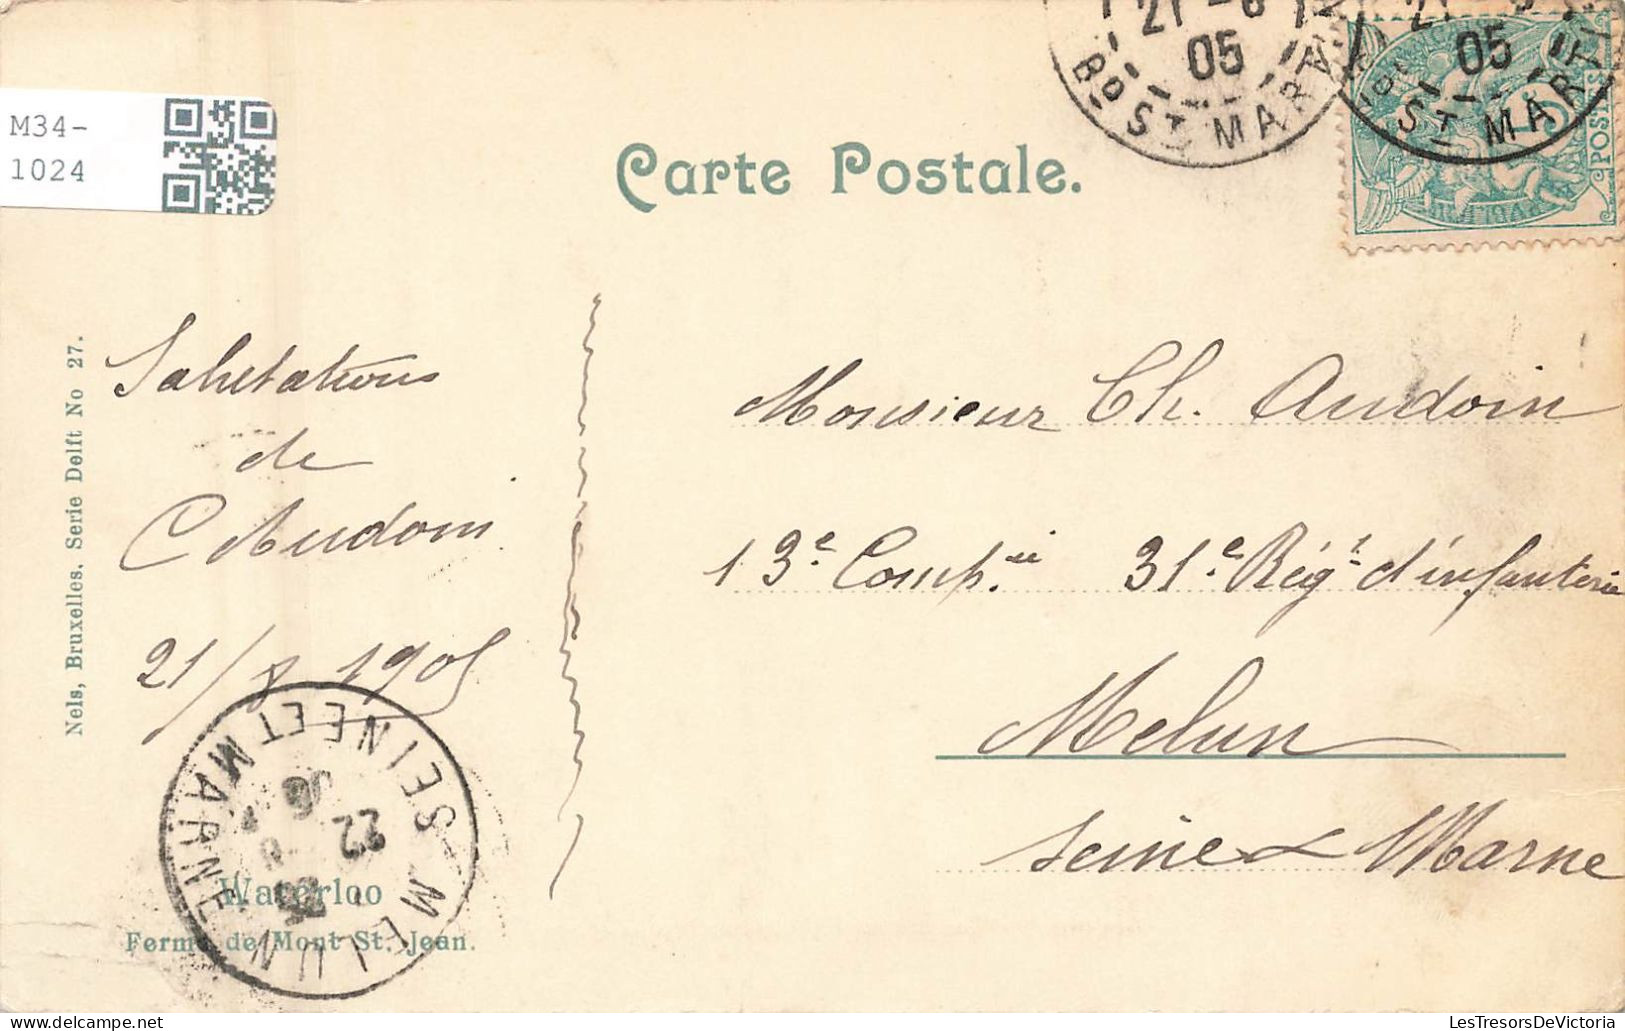 M34-
1024
Carte Postale.
21 - 8
05
Bd ST MARTIN
21 - 8
05
Bd ST MARTIN
5
POSTES
Nels, Bruxelles. Serie Delft No 27.
Salutations
de
C Audoin
21/8 1905
Monsieur Ch. Audoin
13e Compie 31e Régt d'infanterie
Melun
Seine & Marne
MELUN
SEINE ET MARNE
22
Waterloo
Ferme de Mont St. Jean.
LesTresorsDeVictoria